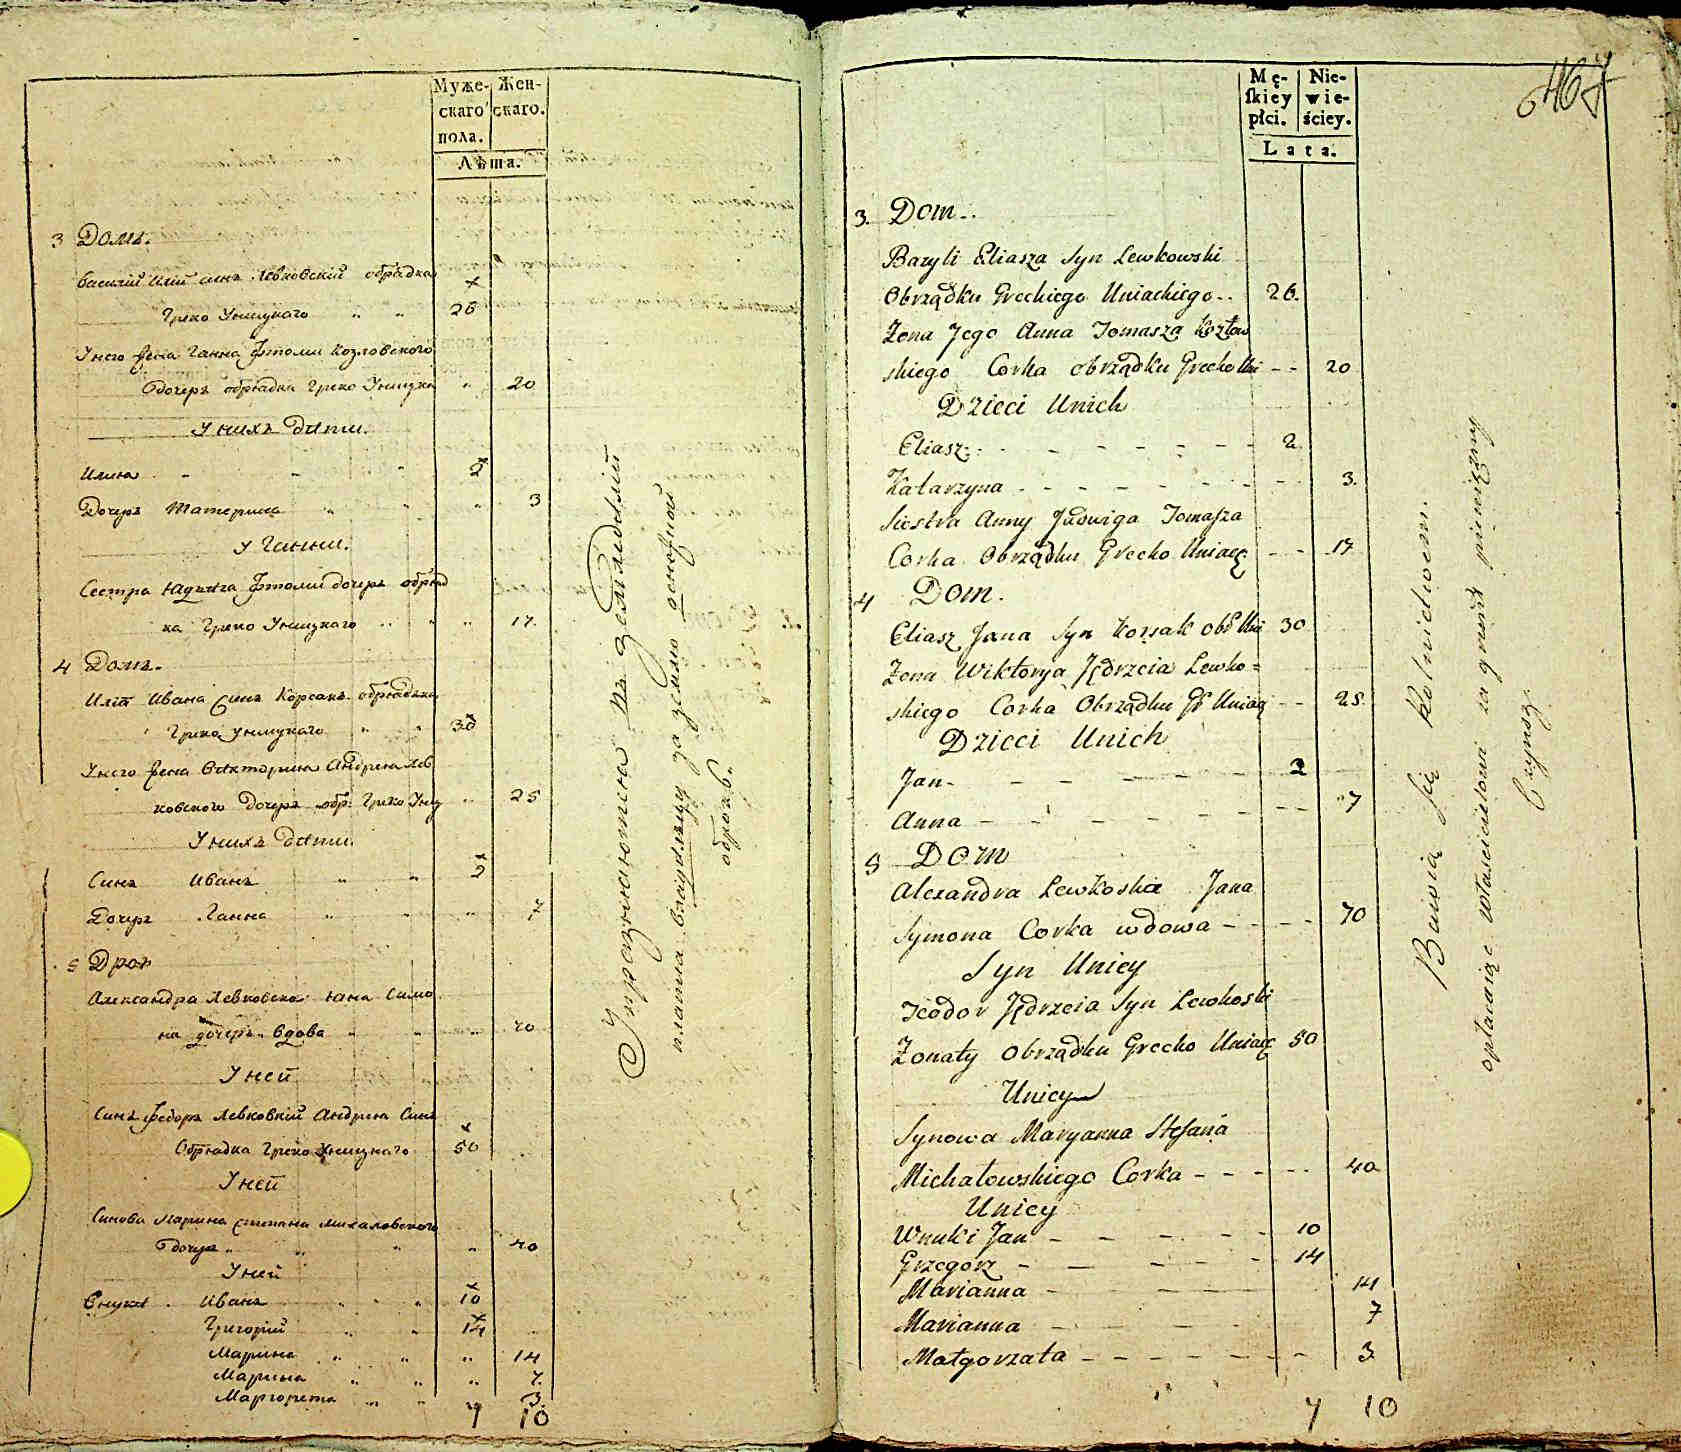 Муже-
скаго
пола.
Жен-
скаго.
Лѣта.
3 Домъ.
Василій Иліи синъ Левковскій обрядка
Греко Уницкаго " " 26
У него жена Ганна Фтоми Козловского
дочеръ обрядка Греко Уницка " 20
У нихъ дити.
Илия - - " 2
Дочеръ Катерина " " " 3
У Ганни.
Сестра Ядвига Фтоми дочеръ обряд
ка Греко Уницкаго " " " 17.
4 Домъ.
Илія Ивана Синъ Корсакъ обрядка
Греко Уницкаго " " 30
У него жена Виктория Андрея Лев
ковского Дочеръ обр: Греко Униц " 25
У нихъ дити.
Синъ Иванъ " " 2
Дочеръ Ганна " " " 7
5 Двор
Александра Левковска Яна Симо
на дочеръ вдова " " " 70
У ней
Синъ Федоръ Левковкій Андрея Синъ
Обрядка Греко Уницкаго 50
У ней
Синова Марина Степана Михаловского
дочеръ " " " " 40
У ней
Внуки Иванъ " " " 10
Григорій " " 14
Марина " " " 14
Марина " " " 7.
Маргорета " " " 3.
7 10
Упражняются въ земледѣлій
платя владѣльцу за землю
оброкъ.
467
Mę-
skiey
płci.
Nie-
wie-
ściey.
Lata.
3. Dom..
Bazyli Eliasza Syn Lewkowski
Obrządku Greckiego Uniackiego.. 26.
Zona Jego Anna Tomasza Kozłow
skiego Corka obrządku Grecko Uni - - 20
Dzieci Unich
Eliasz - - - - - - - 2.
Katarzyna - - - - - - - - 3.
Siostra Anny Jadwiga Tomasza
Corka Obrządku Grecko Uniack - - 17
4 Dom.
Eliasz Jana Syn Korsak ob Uni 30
Zona Wiktorya Jędrzeia Lewko=
skiego Corka Obrządku Gr Uniac - - 25.
Dzieci Unich
Jan - - - - - - - 2
Anna - - - - - - - - 7
5 Dom
Alexandra Lewkoska Jana
Symona Corka wdowa - - - - 70
Syn Unicy
Teodor Jędrzeia Syn Lewkoski
Zonaty obrządku Grecko Uniac 50
Unicy
Synowa Maryanna Stefana
Michałowskiego Corka - - - - - 40
Unicy
Wnuki Jan - - - - - - 10
Grzegorz - - - - - 14
Marianna - - - - - 14
Marianna - - - - - 7
Małgorzata - - - - - - - 3
7 10
Bawią się Rolnictwem.
opłacaiąc właścicielowi za grunt pieniężny
Czynsz.